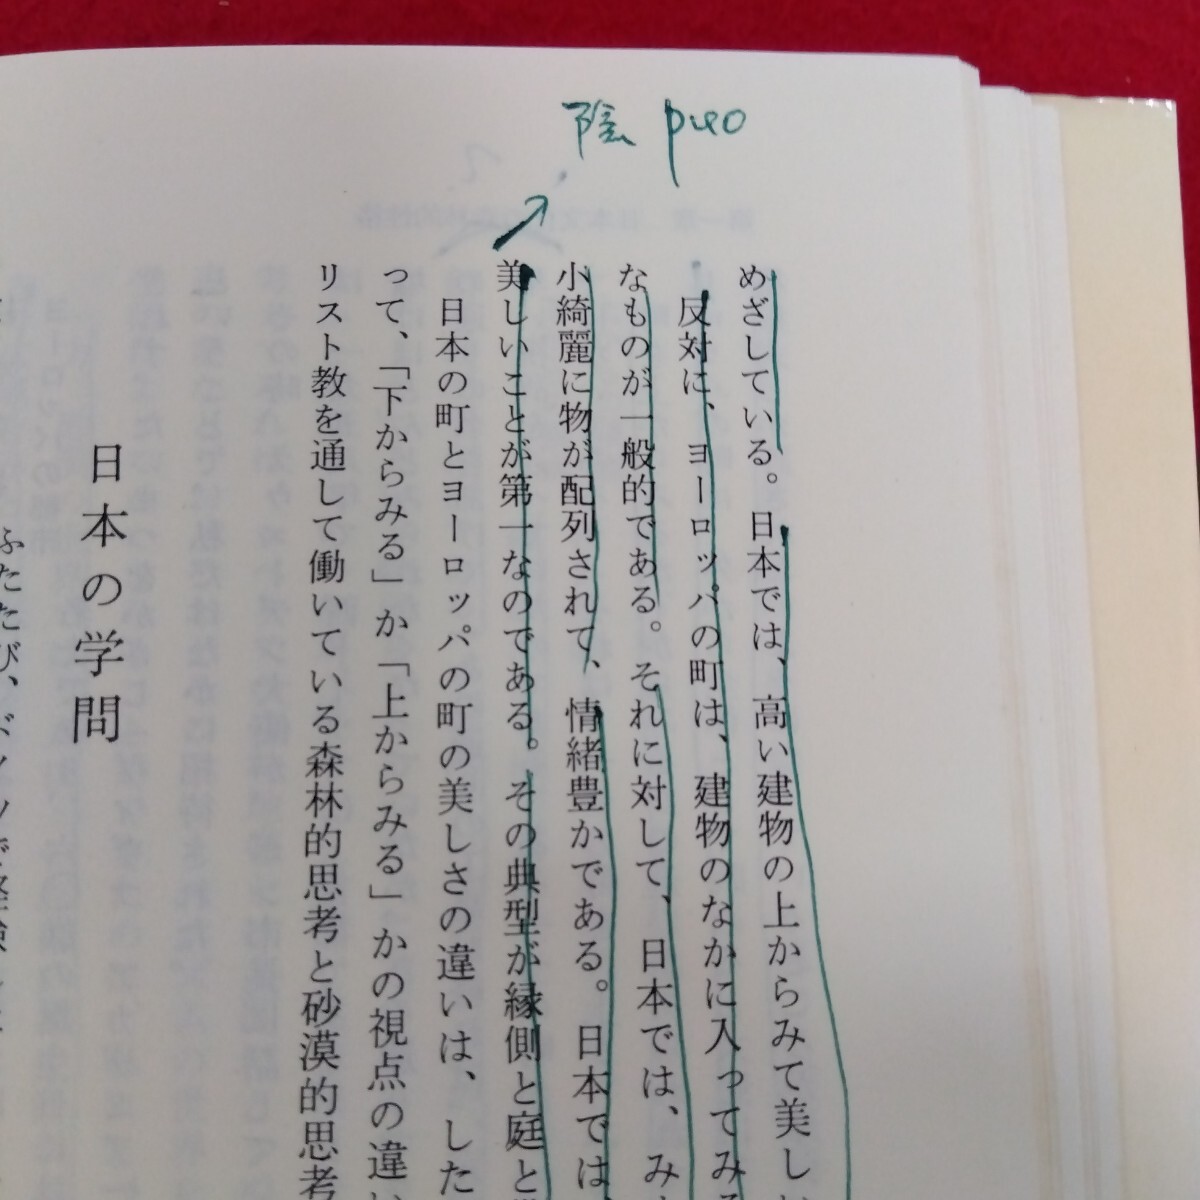 陰
めざしている。日本では、高い建物の上からみて美し
反対に、ヨーロッパの町は、建物のなかに入ってみる
なものが一般的である。それに対して、日本では、み
小綺麗に物が配列されて、情緒豊かである。日本では、
美しいことが第一なのである。その典型が縁側と庭と
日本の町とヨーロッパの町の美しさの違いは、した
って、「下からみる」か「上からみる」かの視点の違い
リスト教を通して働いている森林的思考と砂漠的思考
日本の学問
ふたたび、ドイツで経験した